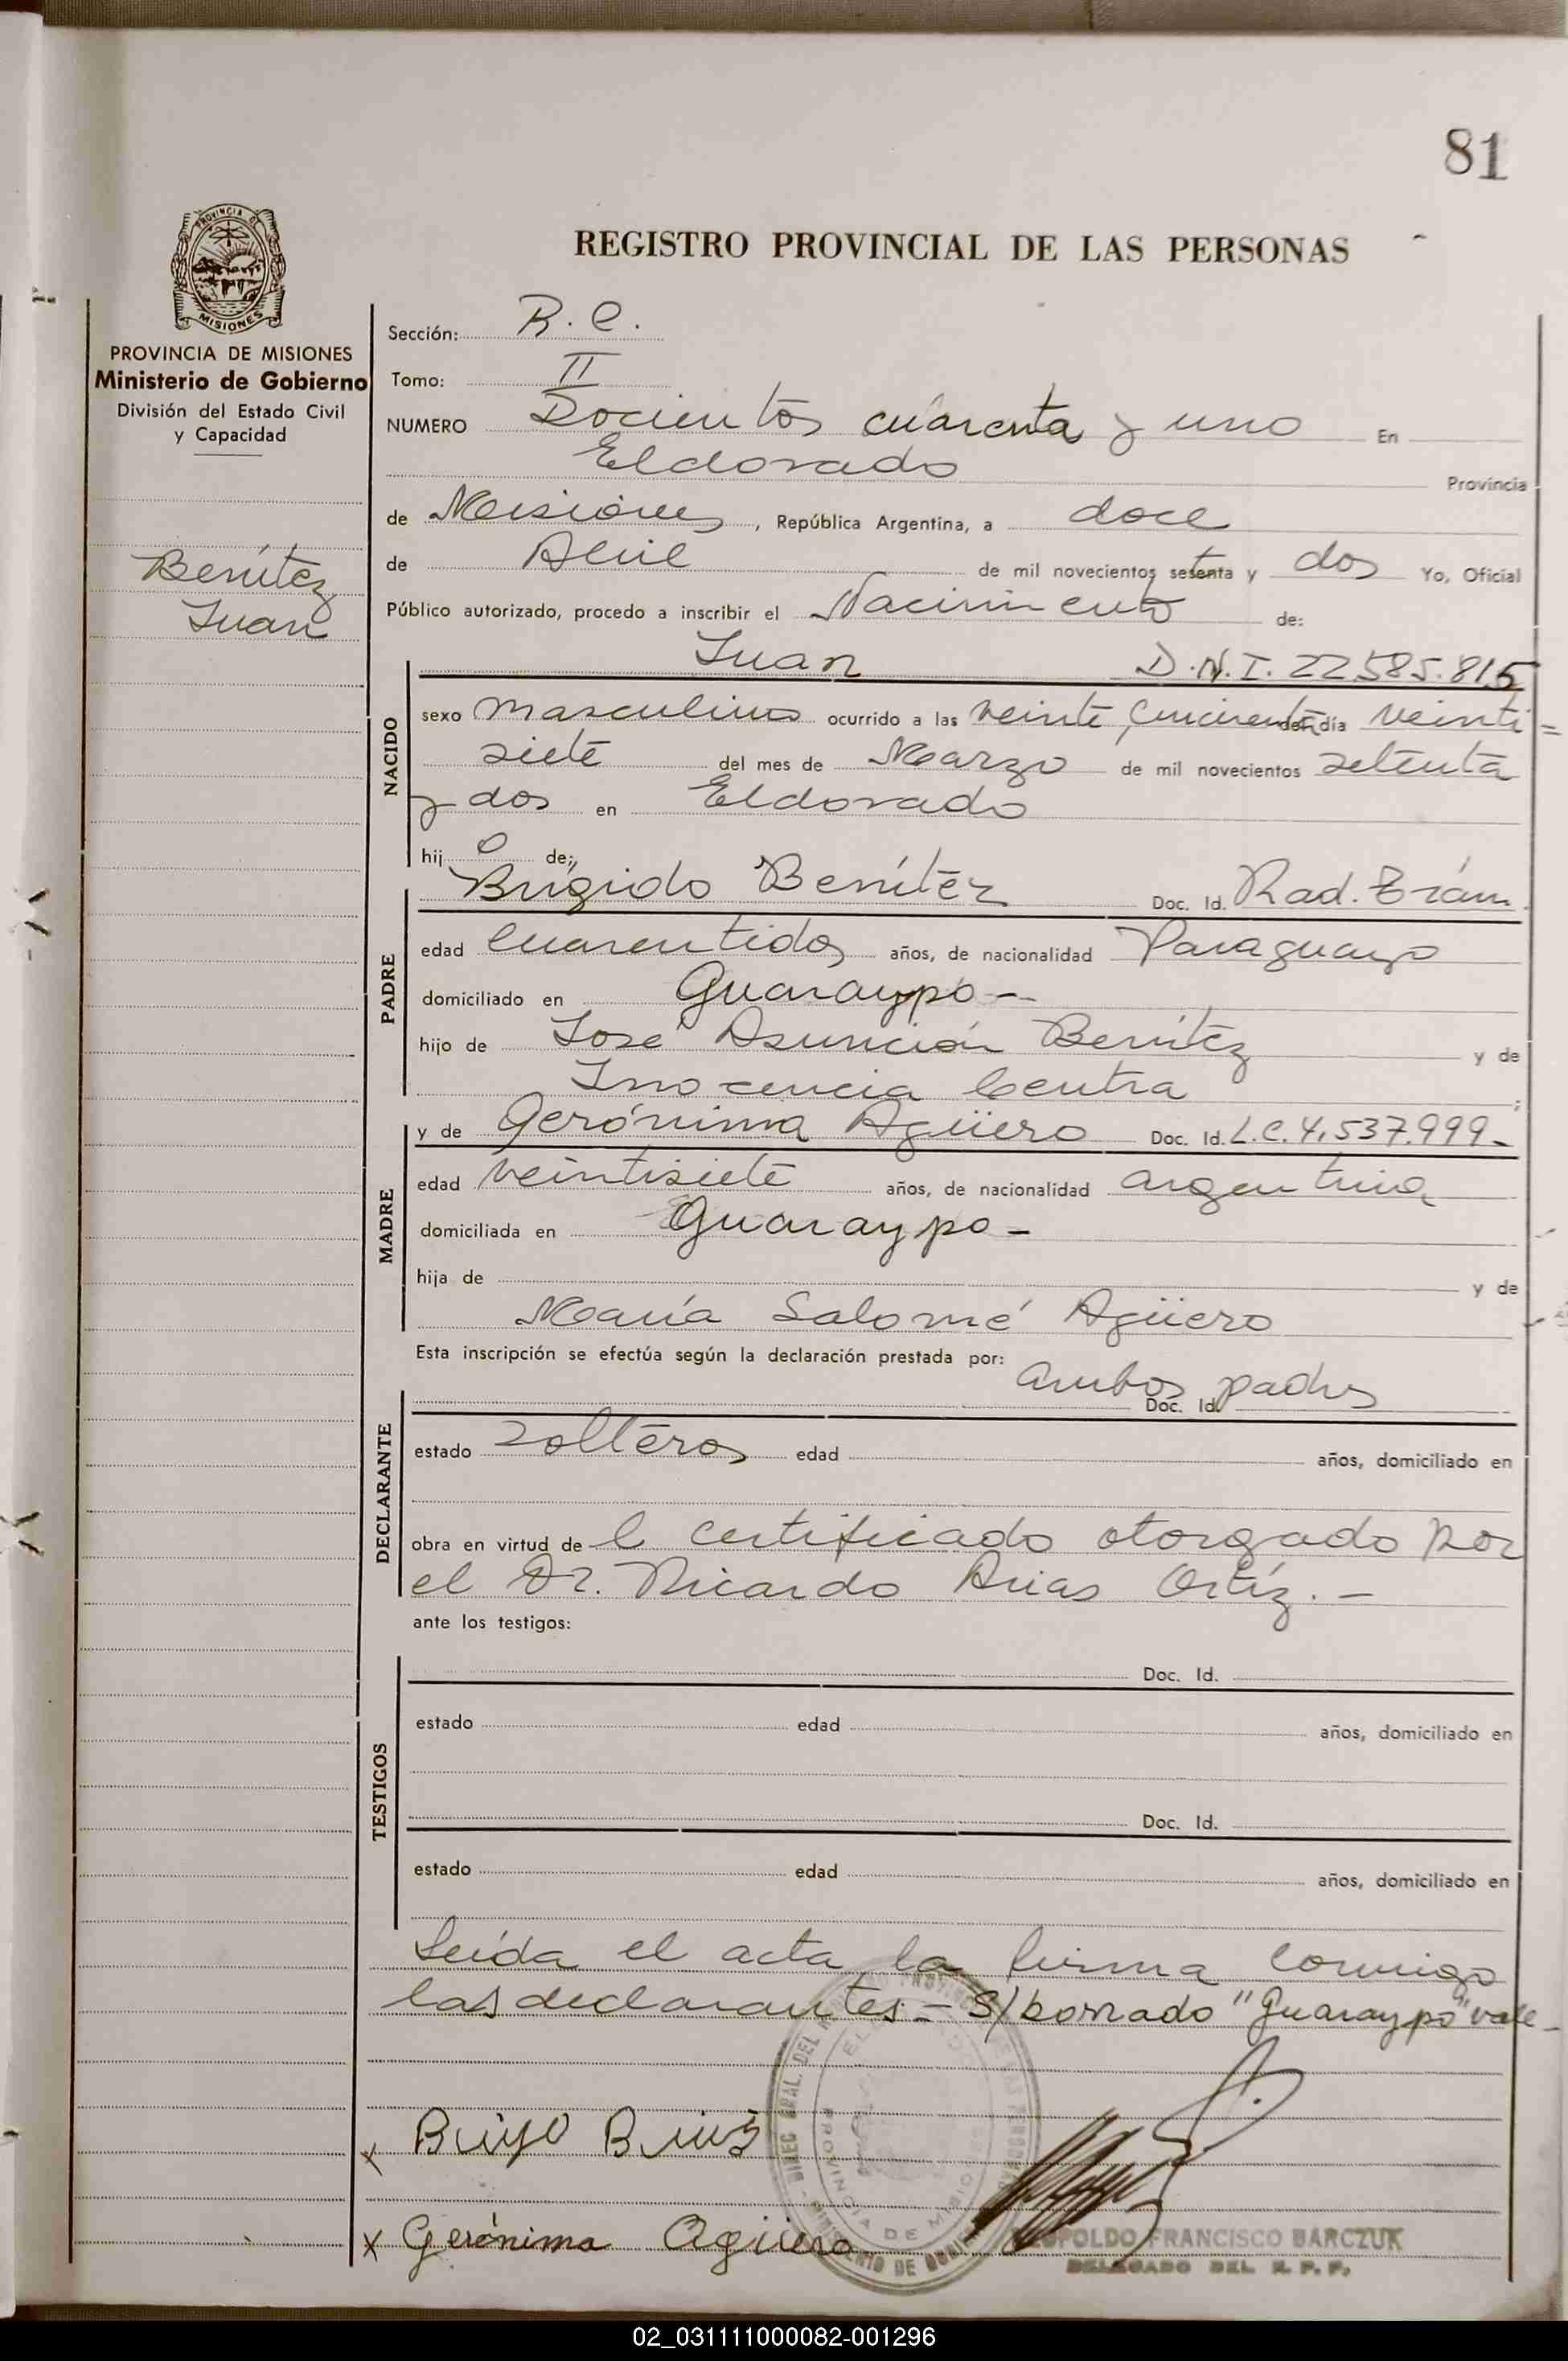 81
REGISTRO PROVINCIAL DE LAS PERSONAS
PROVINCIA DE
MISIONES
PROVINCIA DE MISIONES
Ministerio de Gobierno
División del Estado Civil
y Capacidad
Benítez
Juan
Sección: R. C.
Tomo: II
NUMERO Docientos cuarenta y uno En
Eldorado Provincia
de Misiones, República Argentina, a doce
de Abril de mil novecientos setenta y dos Yo, Oficial
Público autorizado, procedo a inscribir el Nacimiento de:
Juan D.N.I. 22.585.815
NACIDO
sexo masculino ocurrido a las veinte, cincuenta del día veinti=
siete del mes de Marzo de mil novecientos setenta
y dos en Eldorado
hij o de:
PADRE
Brígido Benítez Doc. Id. Rad. Trám.
edad cuarentidos años, de nacionalidad Paraguayo
domiciliado en Guaraypo -
hijo de José Asunción Benítez y de
Inocencia Centra;
MADRE
y de Gerónima Agüero Doc. Id. L.C. 4.537.999-
edad veintisiete años, de nacionalidad argentina
domiciliada en Guaraypo -
hija de y de
María Salomé Agüero
Esta inscripción se efectúa según la declaración prestada por: ambos padres
DECLARANTE
Doc. Id.
estado solteros edad años, domiciliado en
obra en virtud de l certificado otorgado por
el Dr. Ricardo Arias Ortíz. -
ante los testigos:
TESTIGOS
Doc. Id.
estado edad años, domiciliado en
Doc. Id.
estado edad años, domiciliado en
Leída el acta la firma conmigo
los declarantes - S/borrado "Guaraypo" vale -
x
x Gerónima Agüero
PROVINCIA DE MISIONES
LEOPOLDO FRANCISCO BARCZUK
DELEGADO DEL R. P. P.
02_031111000082-001296